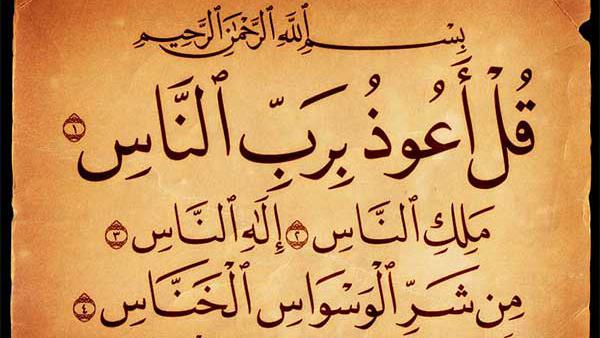 بِسْمِ ٱللَّهِ ٱلرَّحْمَٰنِ ٱلرَّحِيمِ
قُلْ أَعُوذُ بِرَبِّ ٱلنَّاسِ ١
مَلِكِ ٱلنَّاسِ ٢ إِلَٰهِ ٱلنَّاسِ ٣
مِن شَرِّ ٱلْوَسْوَاسِ ٱلْخَنَّاسِ ٤